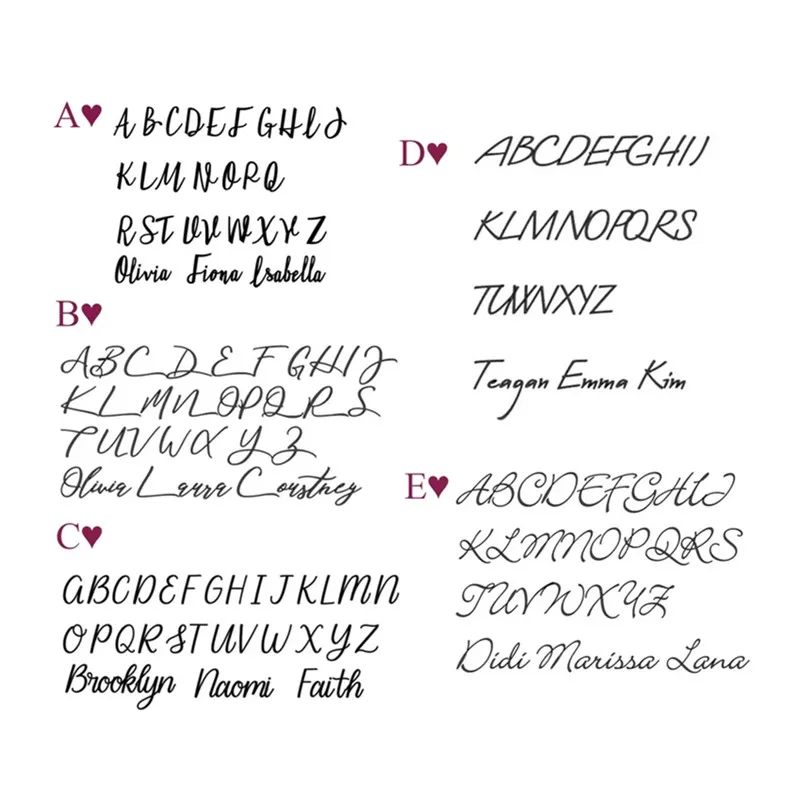 A♥ A B C D E F G H I J
K L M N O P Q
R S T U V W X Y Z
Olivia Fiona Isabella
B♥
A B C D E F G H I J
K L M N O P Q R S
T U V W X Y Z
Olivia Laura Courtney
C♥
A B C D E F G H I J K L M N
O P Q R S T U V W X Y Z
Brooklyn Naomi Faith
D♥ A B C D E F G H I J
K L M N O P Q R S
T U V W X Y Z
Teagan Emma Kim
E♥ A B C D E F G H I J
K L M N O P Q R S
T U V W X Y Z
Didi Marissa Lana